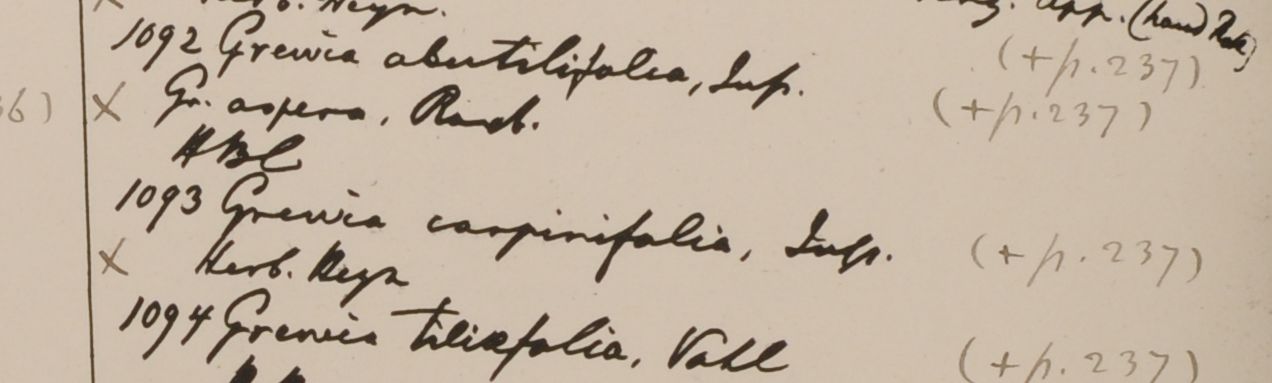 Herb. Heyn.
App. (hand Rottl)
1092 Grewia abutilifolia, Jusp. (+p.237)
36) X Gr. aspera, Roxb. (+p.237)
HBC
1093 Grewia carpinifolia, Jusp. (+p.237)
X Herb. Heyn
1094 Grewia tiliæfolia, Vahl (+p.237)